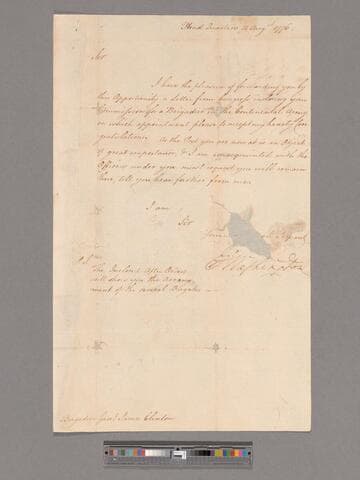 Head Quarters 12 Augt 1776.
Sir
I have the pleasure of forwarding you by
this Opportunity a Letter from Congress inclosing your
Commission for a Brigadier in the Continental Army
on which appointment please to accept my hearty Con-
gratulations. As the Post you are now at is an Object
of great importance, & I am unacquainted with the
Officers under you must request you will remain
there, till you hear further from me.
I am
Sir
Servt
Go Washington
P.S.
The Inclosed After Orders
will shew you the Arrange
ment of the several Brigades
Brigadier Genl James Clinton